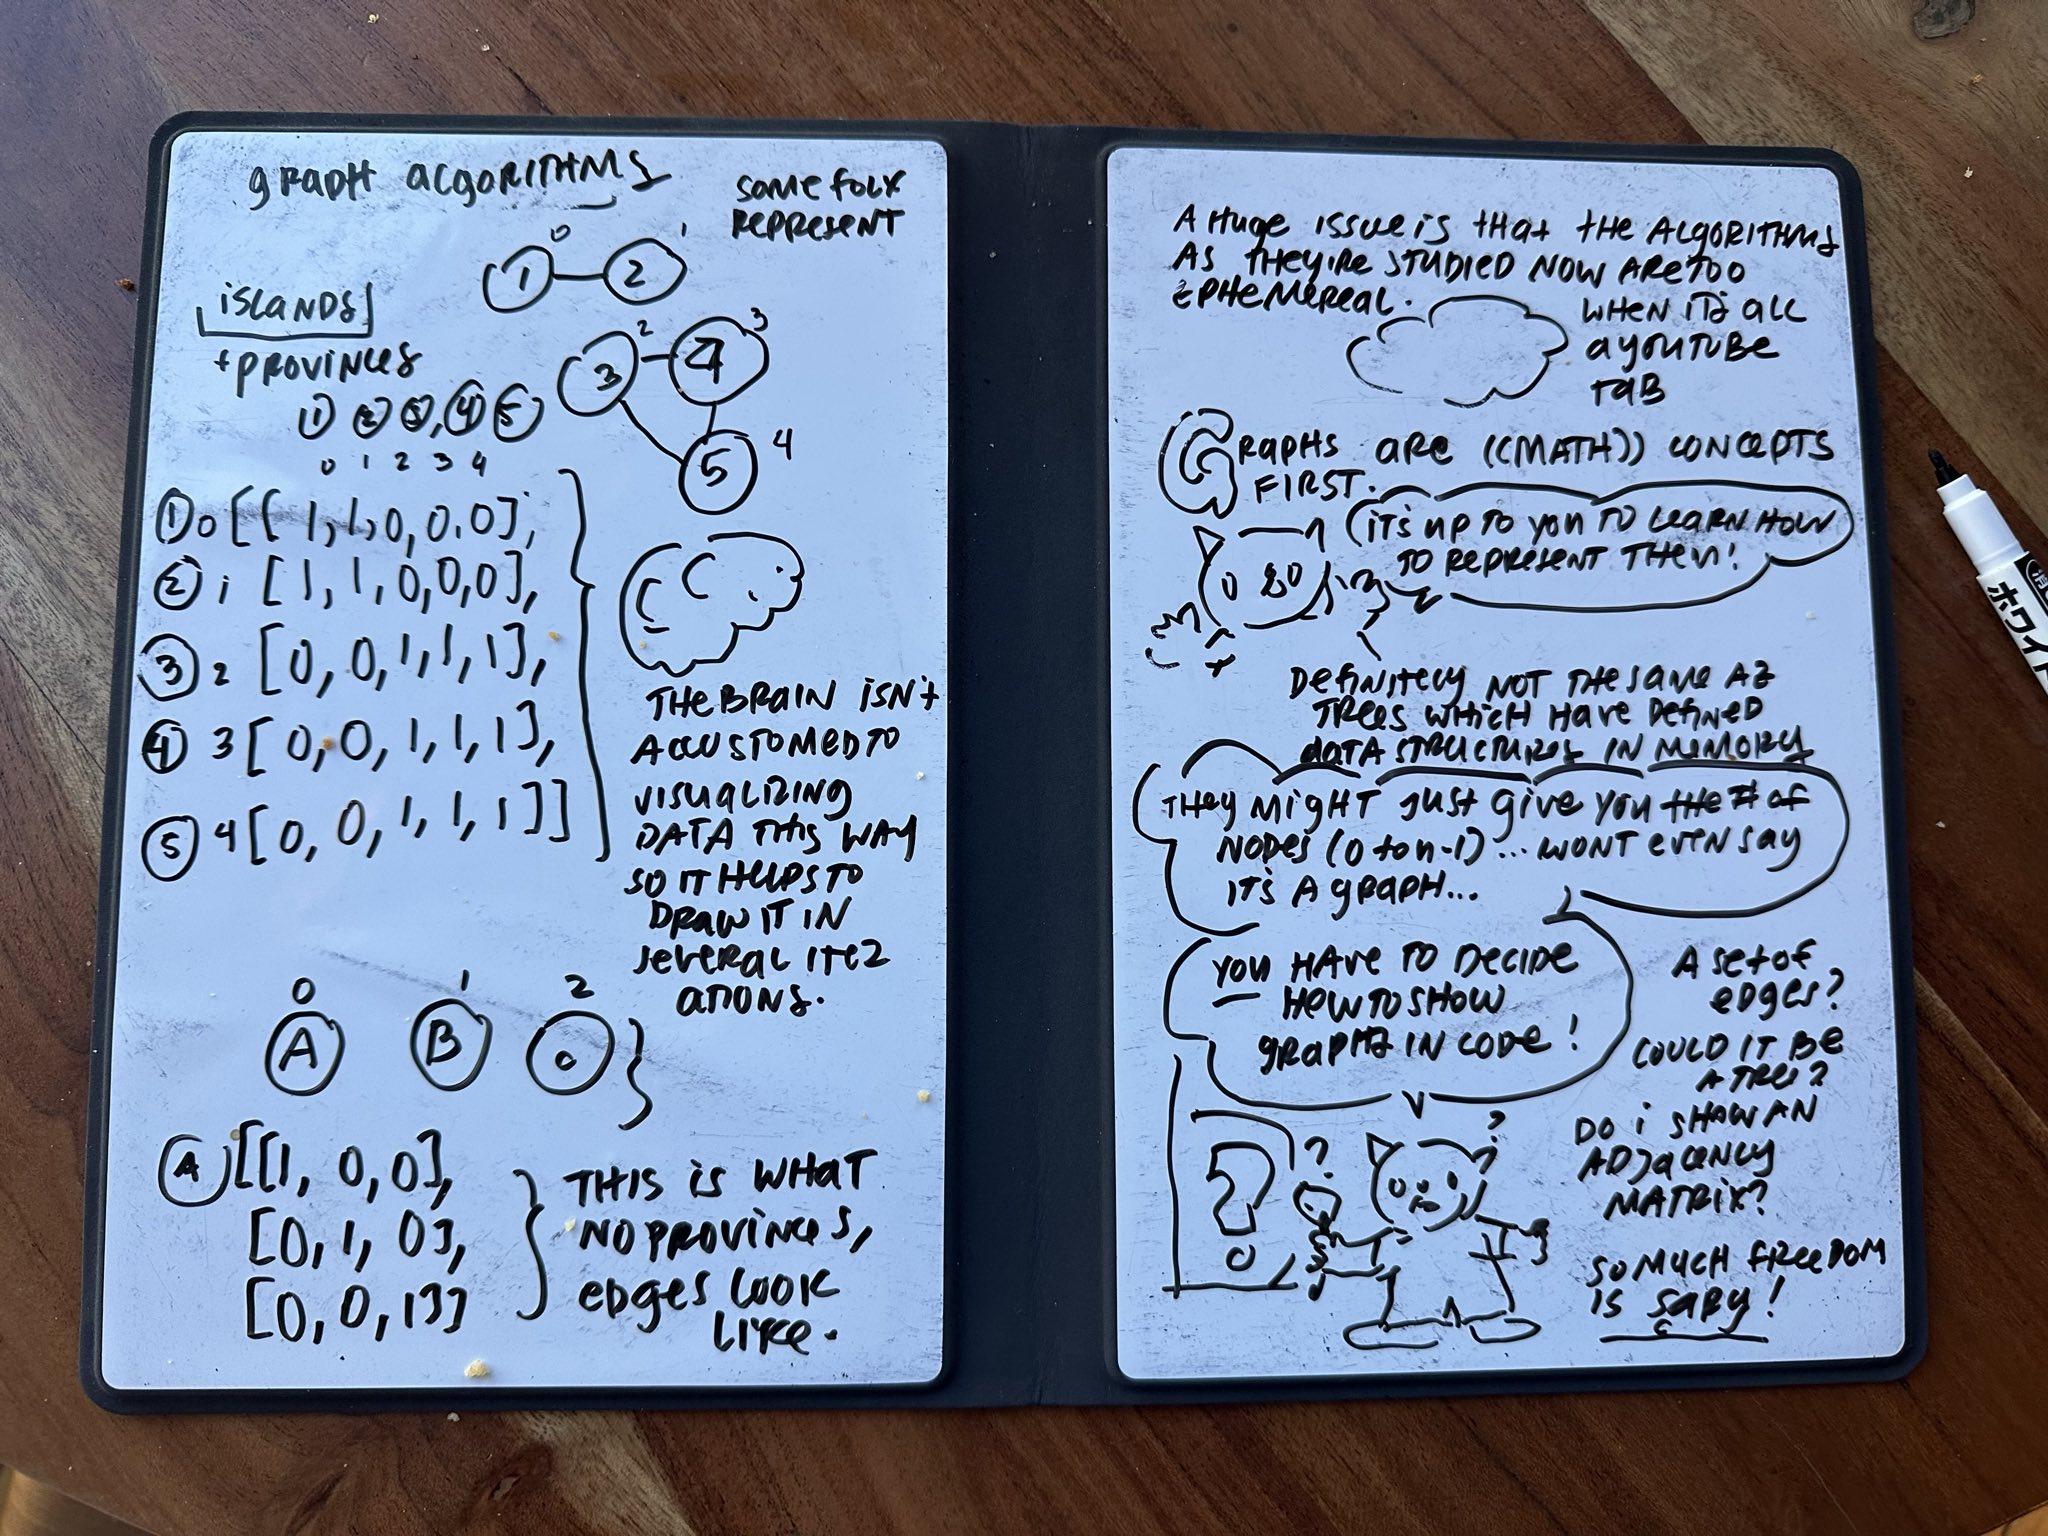 graph algorithms
some folx
represent
0 1
1 2
islands
+ provinces
2 3
3 4
5 4
1 2 3, 4 5
0 1 2 3 4
1 0 [[1, 1, 0, 0, 0],
2 1 [1, 1, 0, 0, 0],
3 2 [0, 0, 1, 1, 1],
4 3 [0, 0, 1, 1, 1],
5 4 [0, 0, 1, 1, 1]]
THE BRAIN ISN't
ACCUSTOMED TO
visualizing
DATA THIS WAY
SO IT HELPS TO
DRAW IT IN
several ite2
ations.
0 1 2
A B C
A [[1, 0, 0],
[0, 1, 0],
[0, 0, 1]]
THIS is WHAT
NO PROVINCES,
edges look
like.
A Huge issue is that the Algorithms
As they're STUDIED NOW ARE TOO
EPHEMEREAL.
WHEN it's all
a youtube
tab
GRAPHS are ((MATH)) CONCEPTS
FIRST.
(it's up to you TO LEARN HOW
TO REPRESENT THEM!
Definitely NOT THE same Az
TREES WHICH HAVE DEFINED
DATA STRUCTURES IN MEMORY
They might just give you the # of
NODES (0 to n-1)... WONT EVEN say
it's A graph...
YOU HAVE TO DECIDE
HOW TO SHOW
graphz IN code!
A set of
edges?
COULD IT BE
A TREE?
DO i SHOW AN
ADJACENCY
MATRIX?
?
?
?
SO MUCH FREEDOM
IS SCARY!
ホワイト